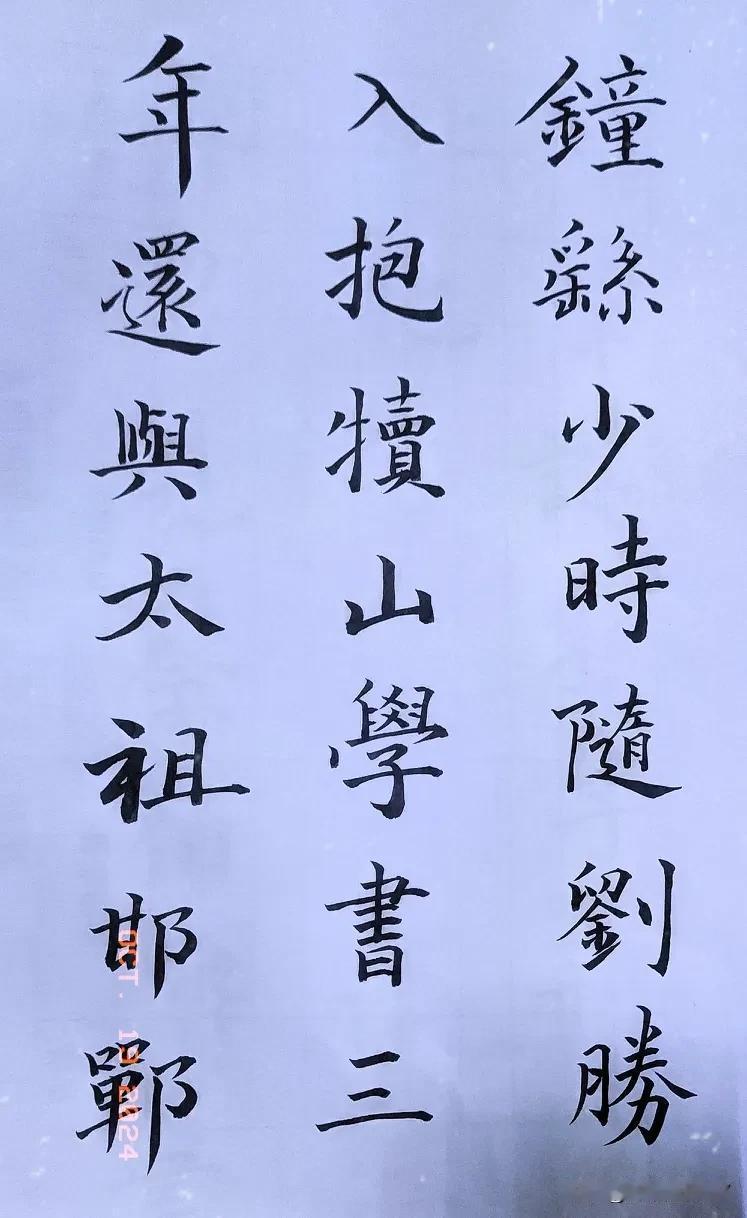 鐘繇少時隨劉勝
入抱犢山學書三
年還與太祖邯
鄲
OCT. 19 2024